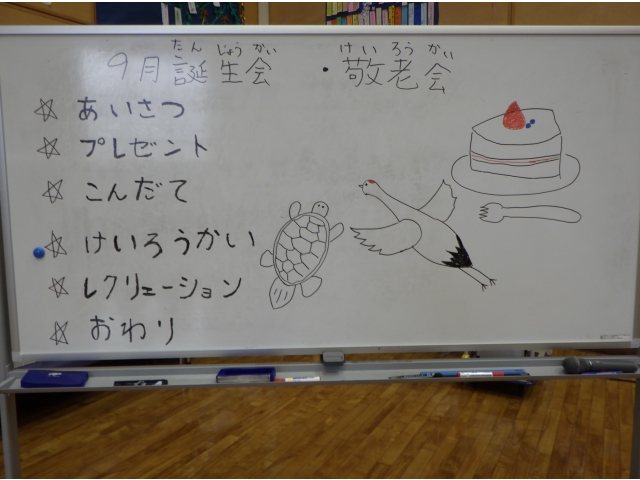 たん じょう かい けい ろう かい
9月誕生会 ・敬老会
☆ あいさつ
☆ プレゼント
☆ こんだて
☆ けいろうかい
☆ レクリェーション
☆ おわり